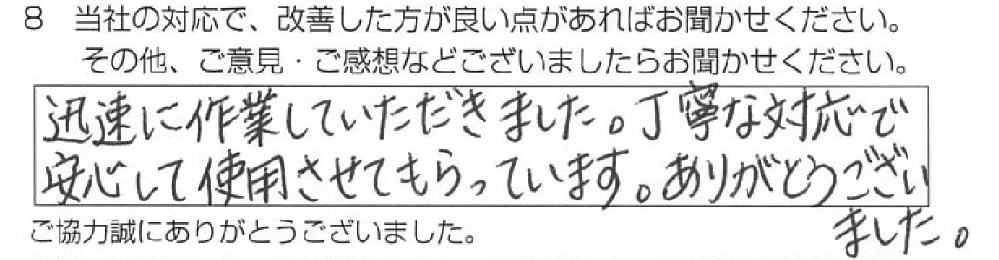 8 当社の対応で、改善した方が良い点があればお聞かせください。
その他、ご意見・ご感想などございましたらお聞かせください。
迅速に作業していただきました。丁寧な対応で
安心して使用させてもらっています。ありがとうござい
ました。
ご協力誠にありがとうございました。